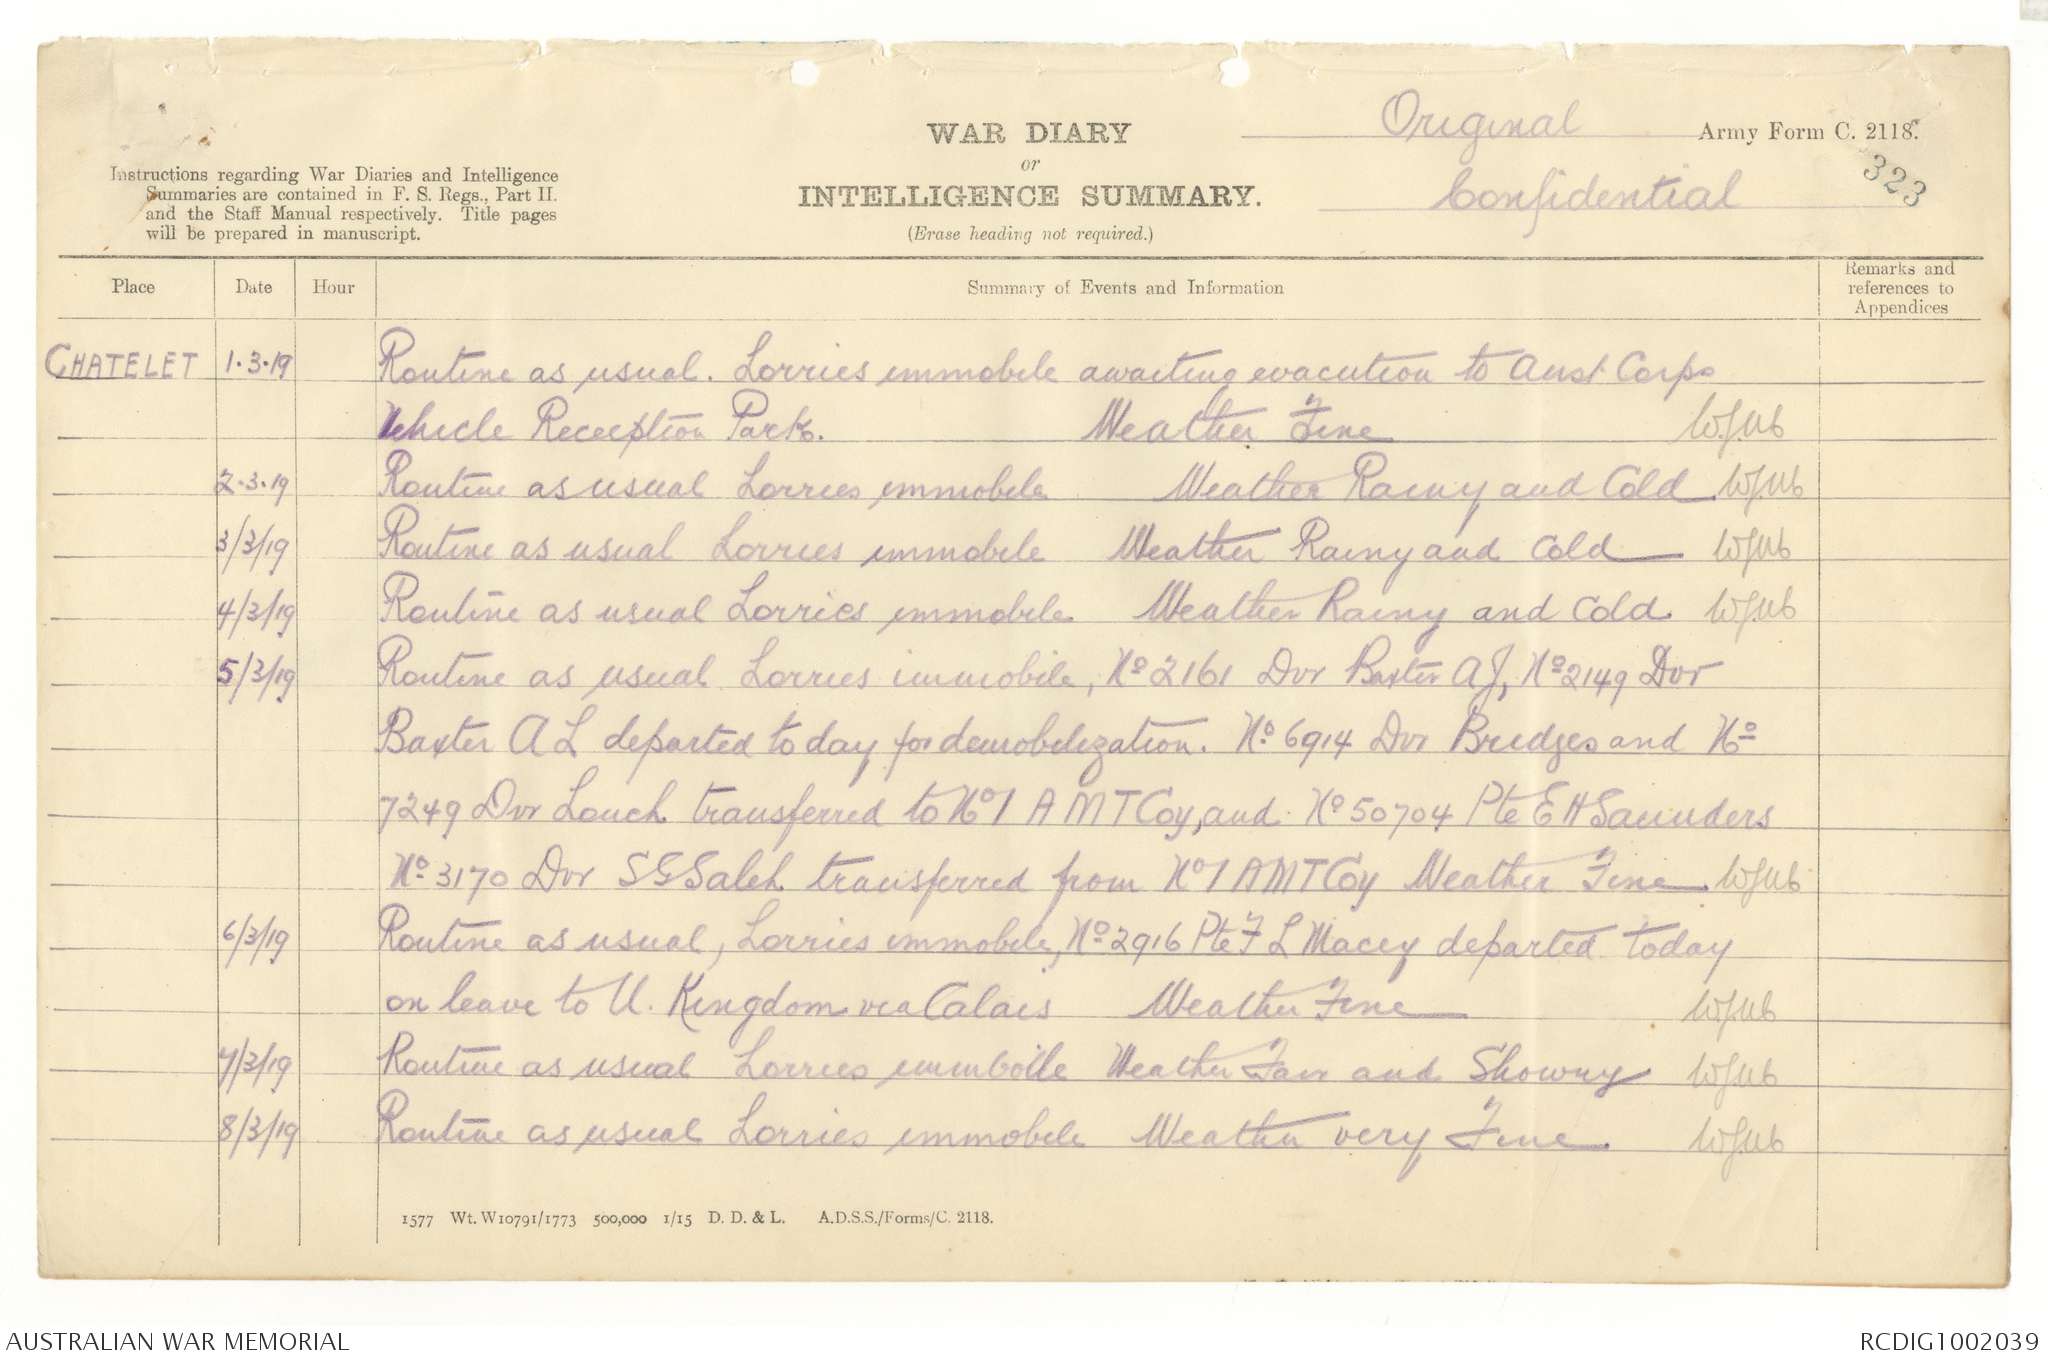 Original
WAR DIARY
Army Form C. 2118.
or
INTELLIGENCE SUMMARY.
Confidential
323
(Erase heading not required.)
Instructions regarding War Diaries and Intelligence
Summaries are contained in F. S. Regs., Part II.
and the Staff Manual respectively. Title pages
will be prepared in manuscript.
Place Date Hour Summary of Events and Information Remarks and references to Appendices
CHATELET 1.3.19 Routine as usual. Lorries immobile awaiting evacution to Aust Corps
Vehicle Reception Park. Weather Fine
2.3.19 Routine as usual Lorries immobile Weather Rainy and Cold
3/3/19 Routine as usual Lorries immobile Weather Rainy and Cold
4/3/19 Routine as usual Lorries immobile Weather Rainy and Cold
5/3/19 Routine as usual Lorries immobile, No 2161 Dvr Baxter A J, No 2149 Dvr
Baxter A L departed today for demobilization. No 6914 Dvr Bridges and No
7249 Dvr Louch transferred to No 1 A M T Coy, and No 50704 Pte E H Saunders
No 3170 Dvr S G Saleh transferred from No 1 AMT Coy Weather Fine
6/3/19 Routine as usual, Lorries immobile, No 2916 Pte F L Macey departed today
on leave to U. Kingdom via Calais Weather Fine
7/3/19 Routine as usual Lorries immboile Weather Fair and Showry
8/3/19 Routine as usual Lorries immobile Weather very Fine
1577 Wt. W10791/1773 500,000 1/15 D. D. & L. A.D.S.S./Forms/C. 2118.
AUSTRALIAN WAR MEMORIAL
RCDIG1002039